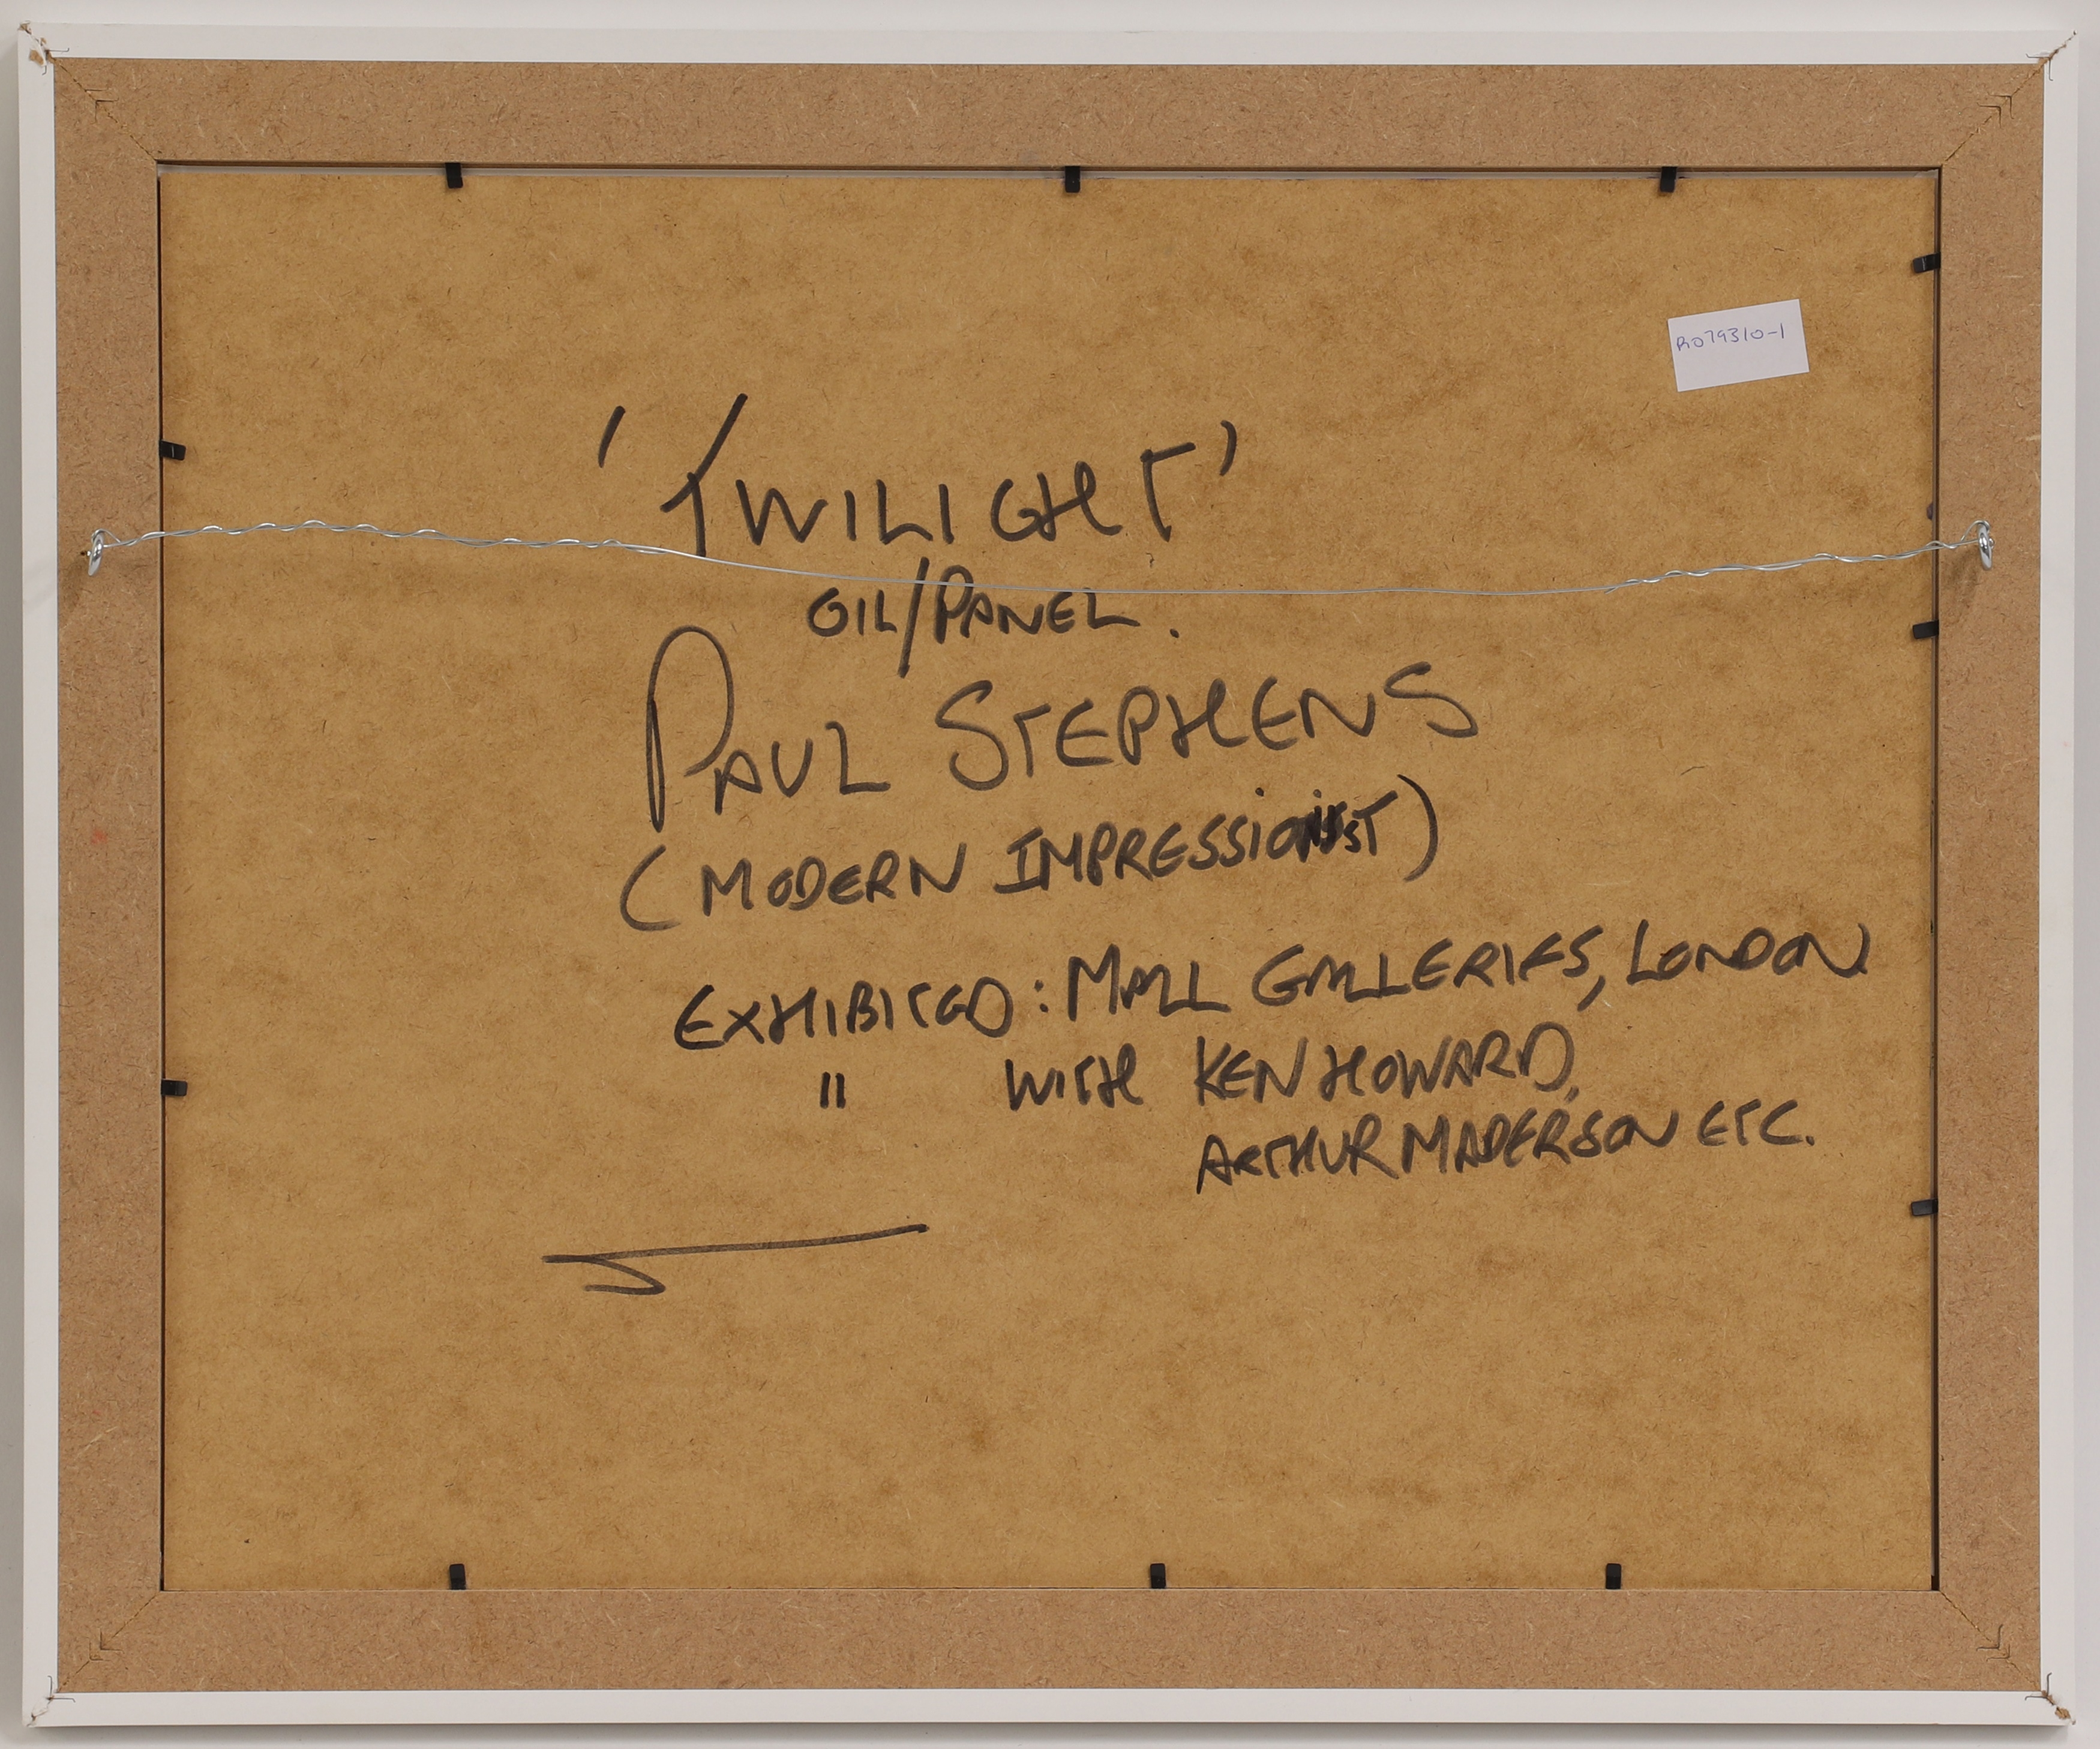 R079310-1
'TWILIGHT'
OIL/PANEL.
PAUL STEPHENS
(MODERN IMPRESSIONIST)
EXHIBITED: MALL GALLERIES, LONDON
" WITH KEN HOWARD,
ARTHUR MADERSON ETC.